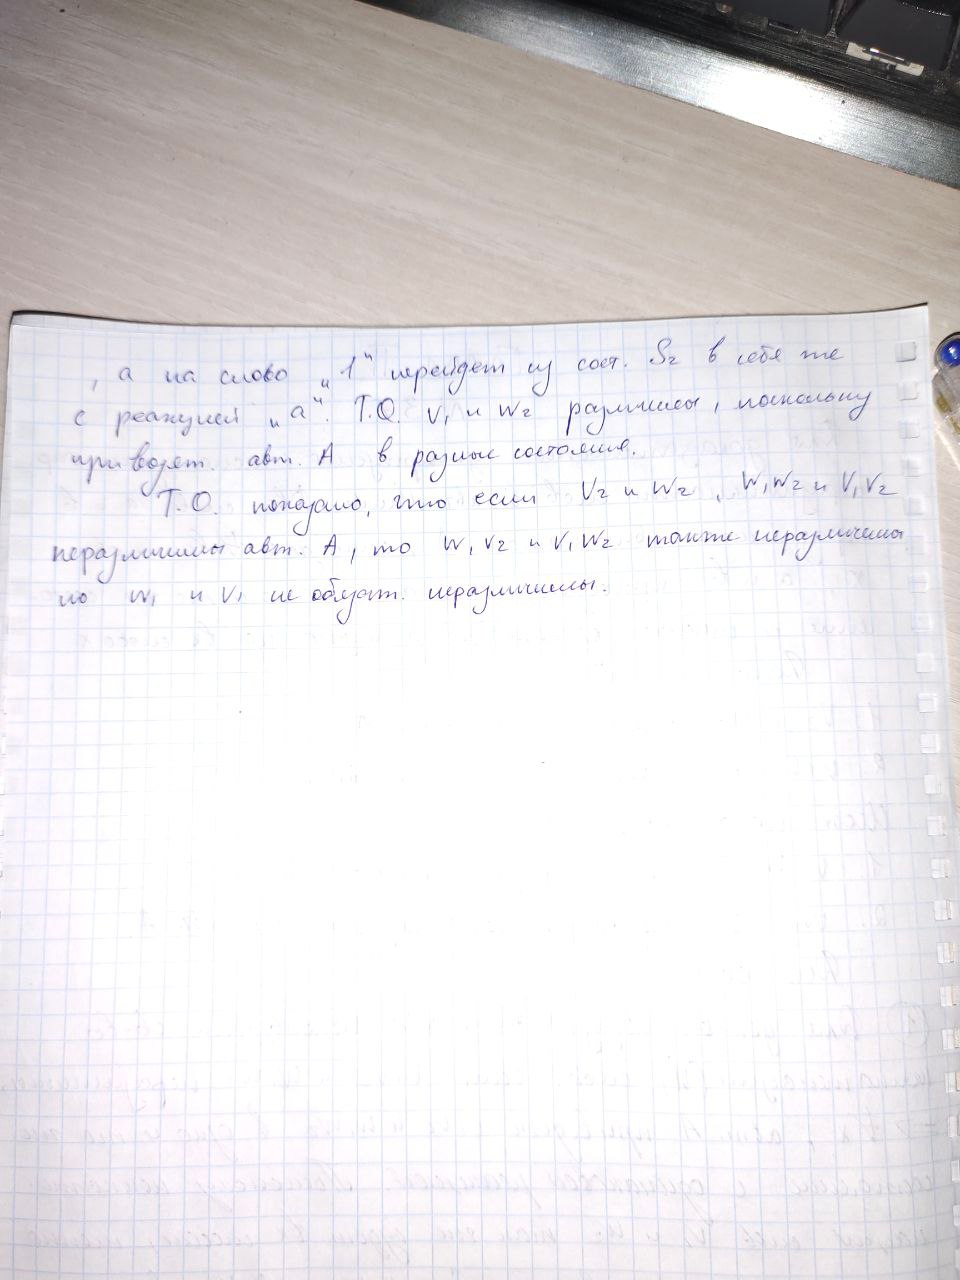 , а на слово „1" перейдет из сост. S₂ в себя же
с реакцией „a". Т.О. V₁ и W₂ различимы, поскольку
приводят. авт. A в разные состояния.
Т.О. показано, что если V₂ и W₂, W₁W₂ и V₁V₂
неразличимы авт. A, то W₁V₂ и V₁W₂ также неразличимы
но W₁ и V₁ не обязат. неразличимы.